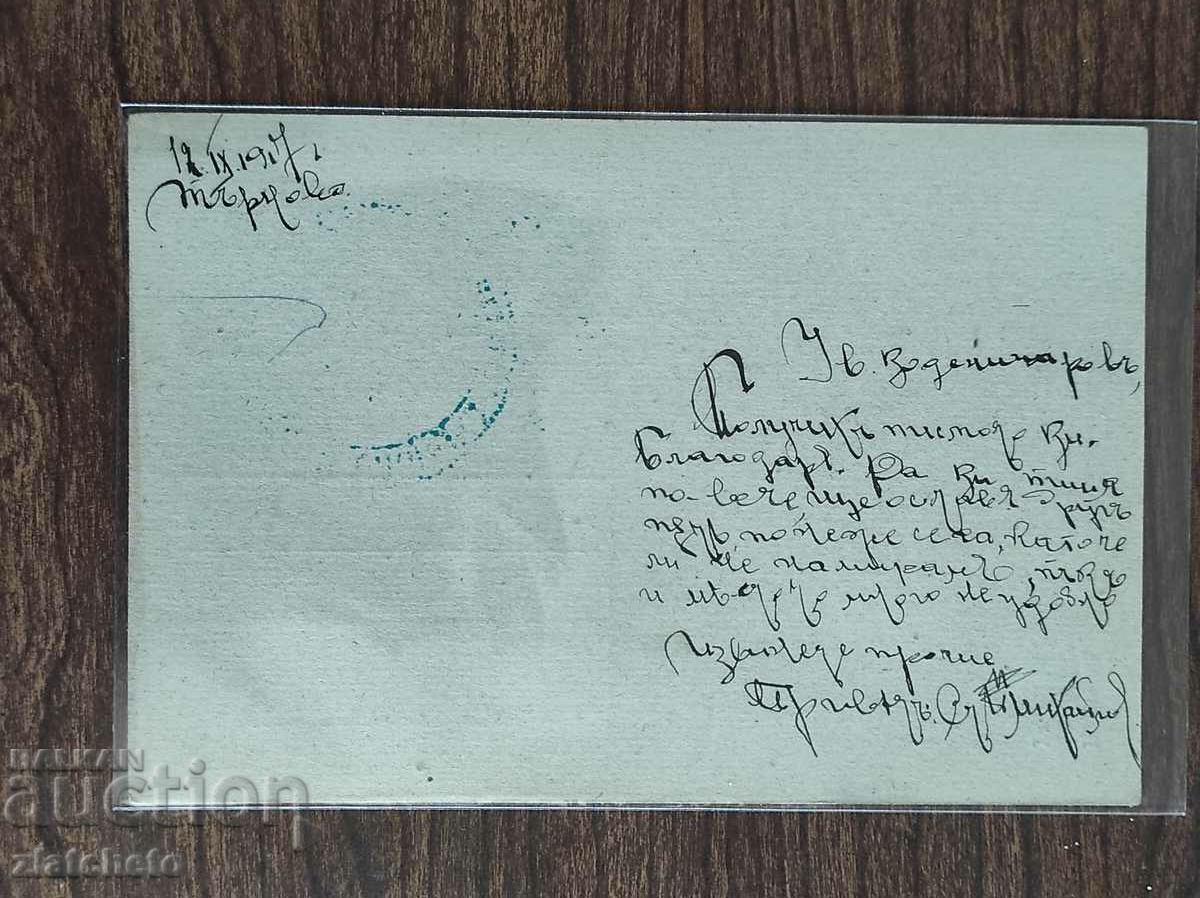 12.IX.1917 г.
Търново.
Ив. Воденичаровъ,
Получихъ писмото Ви.
Благодаря. Да Ви пиша
по-вече, ще оставя другъ
пѫть понеже сега, като че
ли не намирамъ, тъзъ
и много неудобно
прочие
Приветъ. Ст.
BALKAN
auction
zlatcheto